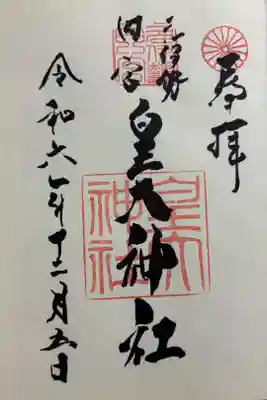 奉拝
元伊勢
内宮
皇大神社
皇大神社
令和六年十二月五日